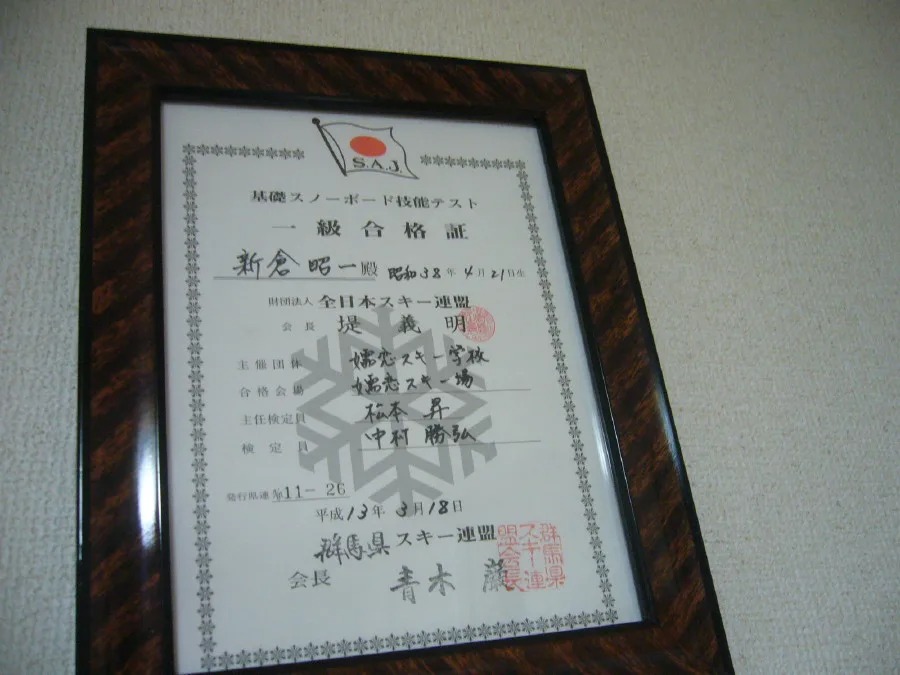 S.A.J.
基礎スノーボード技能テスト
一級合格証
新倉昭一殿 昭和38年4月21日生
財団法人 全日本スキー連盟
会長 堤義明
主催団体 嬬恋スキー学校
合格会場 嬬恋スキー場
主任検定員 松本昇
検定員 中村勝弘
発行県連 №11-26
平成13年3月18日
群馬県スキー連盟
会長 青木
群馬県スキー連盟会長